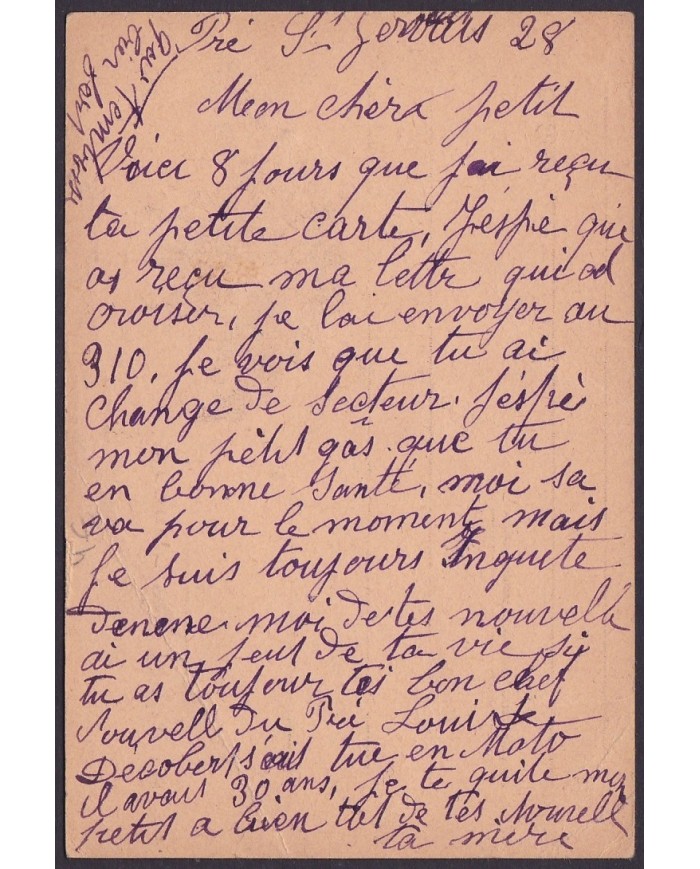 Pré St Gervais 28
Mon chèra petit
Voici 8 jours que j'ai reçu
ta petite carte, J'éspie que
as reçu ma lettr qui ad
croiser, je lai envoyer au
310, je vois que tu ai
change de secteur. J'éspie
mon petit gâs que tu
en bonne santé, moi sa
va pour le moment, mais
je suis toujours Inquete
denene moi de tes nouvelle
ai un peut de ta vie si
tu as toujour tes bon chef
Nouvell du Pré Louis
Décobert s'ait tue en Moto
il avait 30 ans, je te quite mon
petit a bien tot de tes Nouvell
ta mère
qui
bien fort